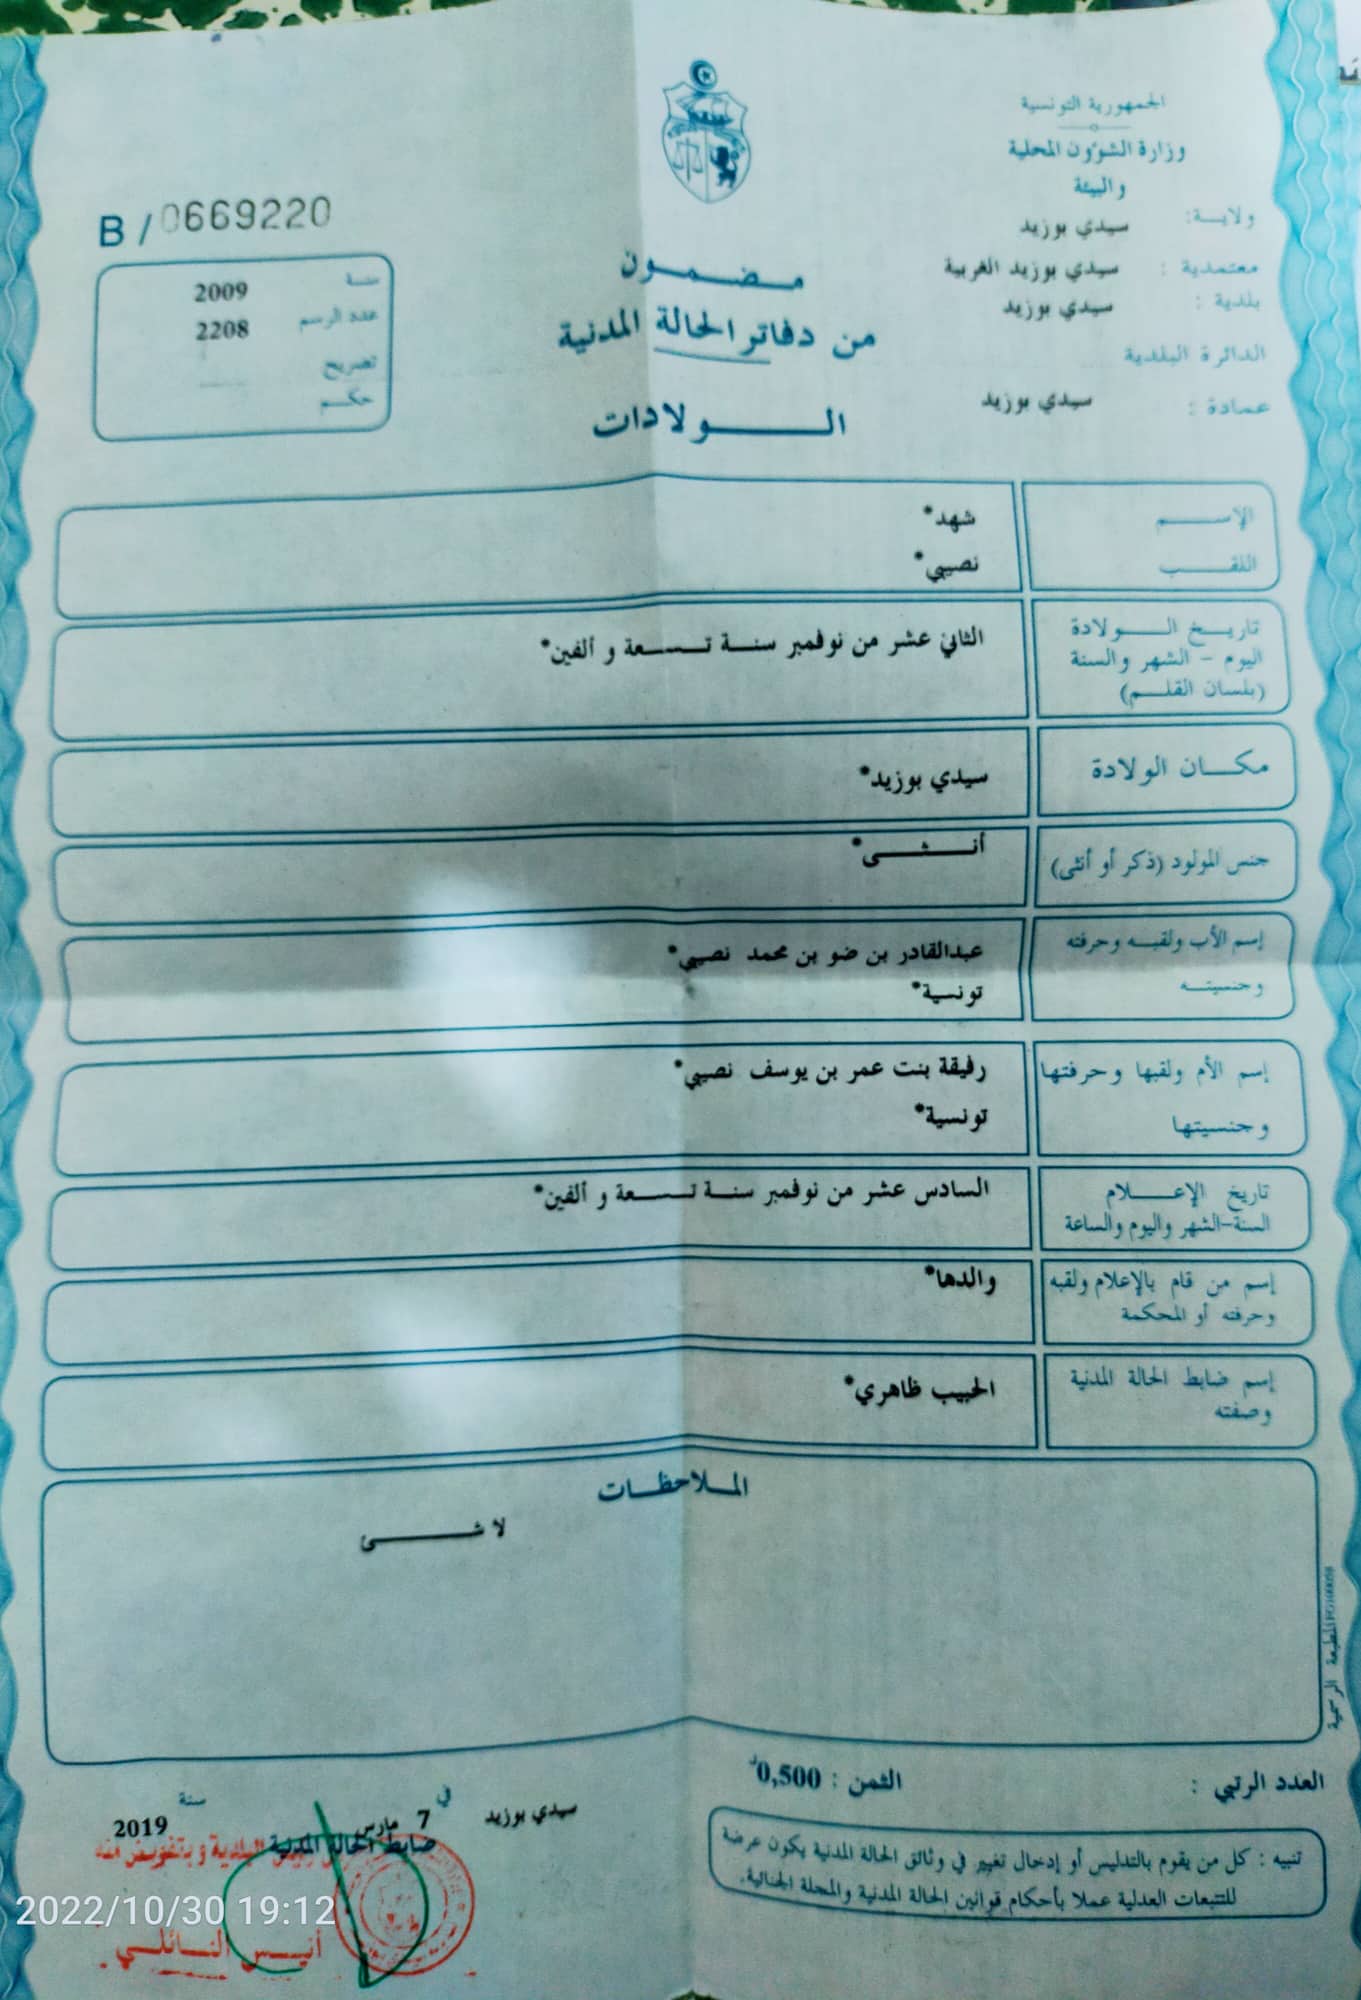 الجمهورية التونسية
وزارة الشؤون المحلية
والبيئة
ولايـة: سيدي بوزيد
معتمدية : سيدي بوزيد الغربية
بلدية : سيدي بوزيد
الدائرة البلدية
عمادة : سيدي بوزيد
B / 0669220
سنة 2009
عدد الرسم 2208
تصريح
حكـم
مـضـمـون
من دفاتر الحالة المدنية
الـولادات
الإسـم شهد*
اللقـب نصيبي*
تاريـخ الـولادة
اليوم - الشهر والسنة
(بلسان القلـم)
الثاني عشر من نوفمبر سنـة تـسـعة و ألفين*
مكـان الولادة سيدي بوزيد*
جنس المولود (ذكر أو أنثى) أنـثـى*
إسم الأب ولقبـه وحرفته عبدالقادر بن ضو بن محمد نصيبي*
وجنسيتـه تونسية*
إسم الأم ولقبها وحرفتها رفيقة بنت عمر بن يوسف نصيبي*
وجنسيتها تونسية*
تاريخ الإعـلام السادس عشر من نوفمبر سنـة تـسـعة و ألفين*
السنة-الشهر واليوم والساعة
إسم من قام بالإعلام ولقبه والدها*
وحرفته أو المحكمة
إسم ضابط الحالة المدنية الحبيب ظاهري*
وصفته
المـلاحظـات
لا شـئ
المطبعة الرسمية
العدد الرتبي :
الثمن : 0,500د
تنبيه : كل من يقوم بالتدليس أو إدخال تغيير في وثائق الحالة المدنية يكون عرضة
للتتبعات العدلية عملا بأحكام قوانين الحالة المدنية والمجلة الجنائية.
سيدي بوزيد في 7 مارس سنة 2019
ضابط الحالة المدنية
رئيس البلدية و بتفويض منه
أنيـس النـائلـي
2022/10/30 19:12